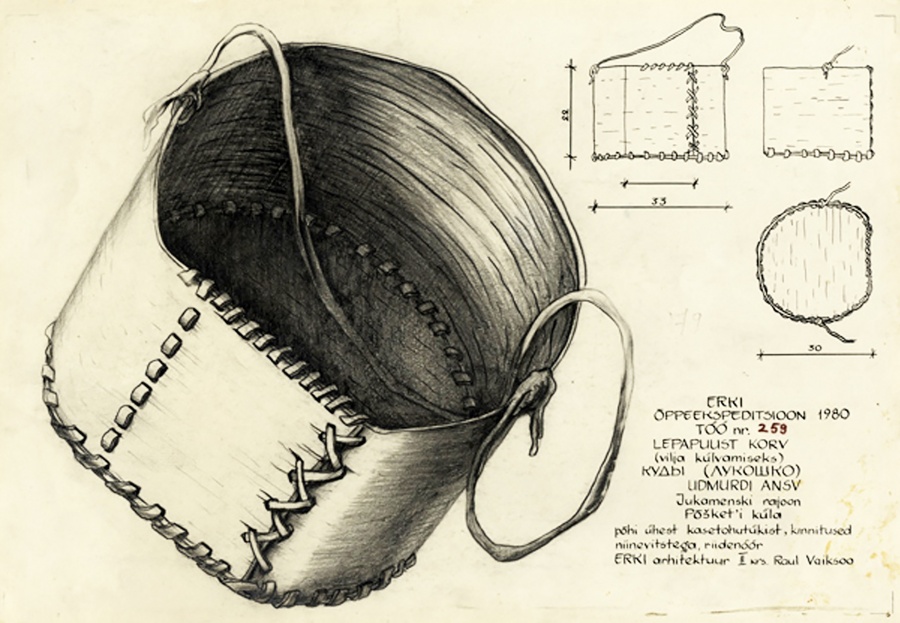 22
33
30
ERKI
ÕPPEEKSPEDITSIOON 1980
TÖÖ nr. 259
LEPAPUUST KORV
(vilja külvamiseks)
КУДЫ (ЛУКОШКО)
UDMURDI ANSV
Jukamenski rajoon
Põžket'i küla
põhi ühest kasetohutükist, kinnitused
niinevitstega, riidenöör
ERKI arhitektuur II krs. Raul Vaiksoo